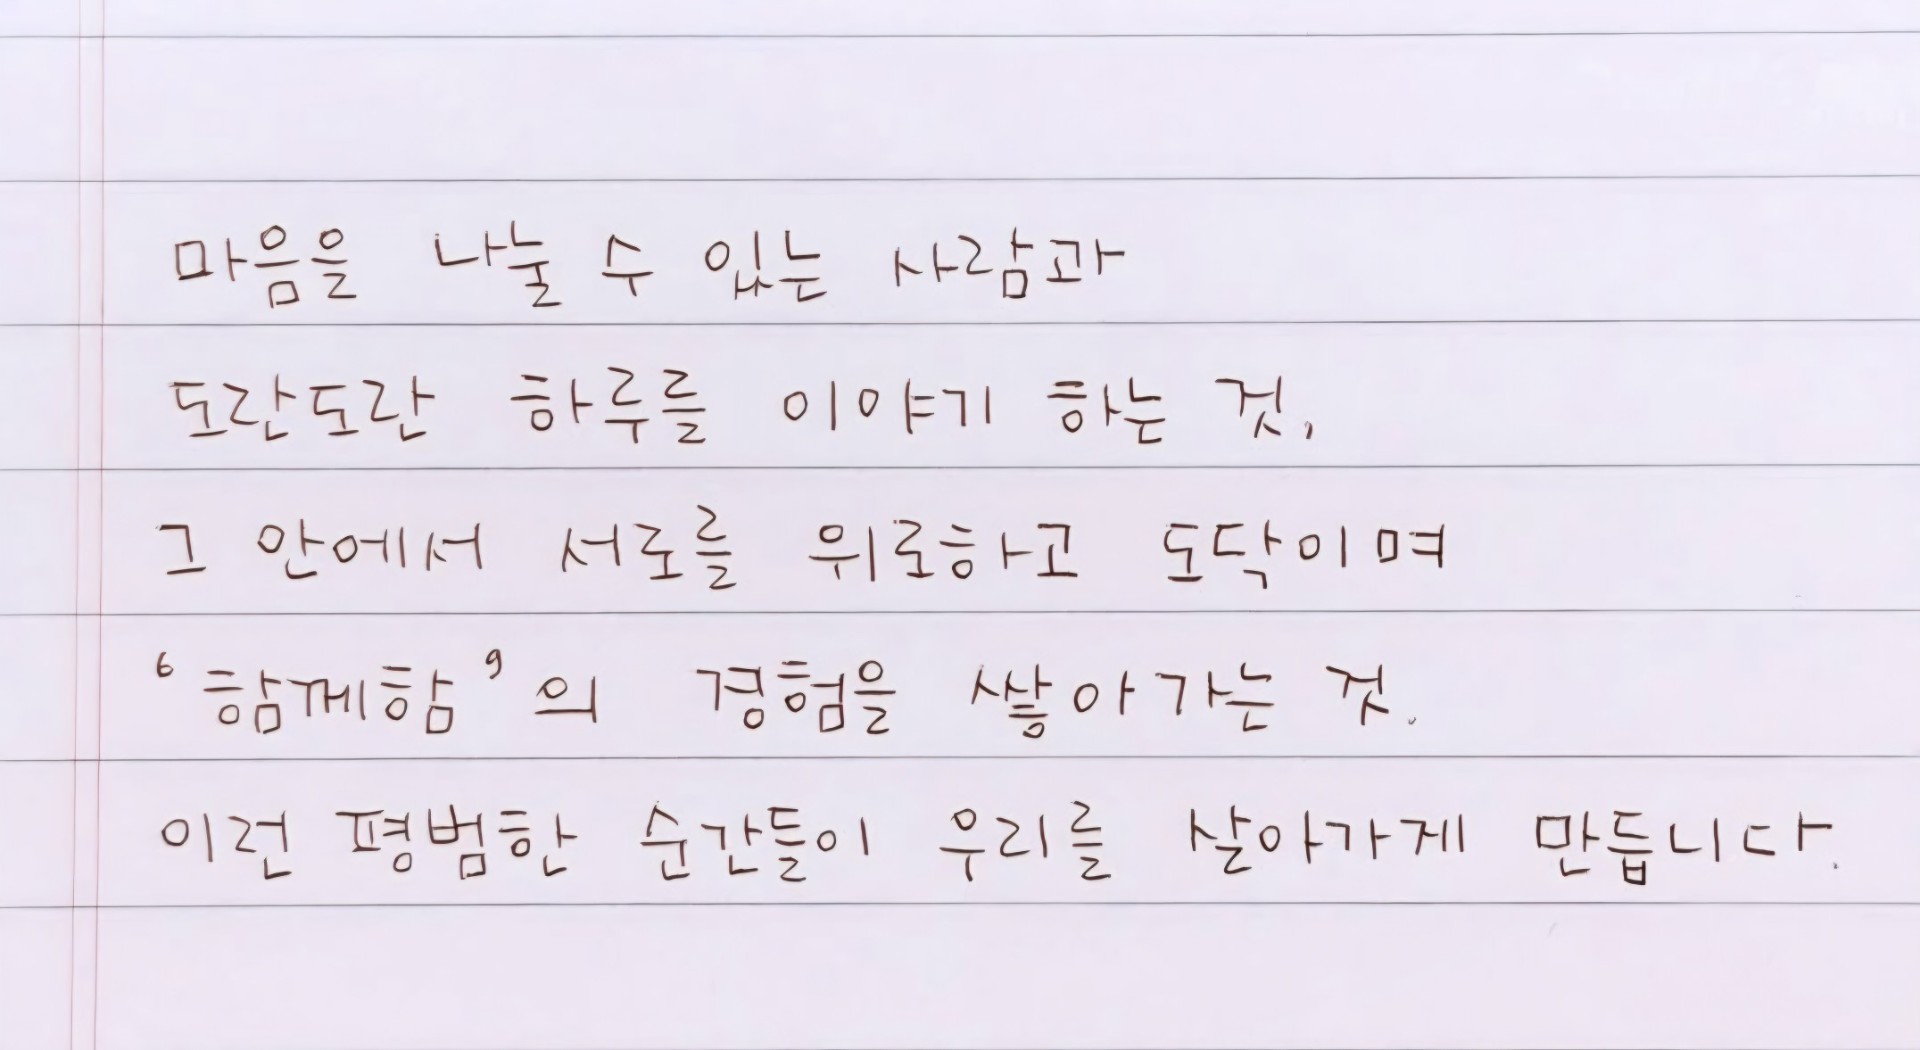 마음을 나눌 수 있는 사람과
도란도란 하루를 이야기 하는 것,
그 안에서 서로를 위로하고 도닥이며
‘함께함’의 경험을 쌓아가는 것.
이런 평범한 순간들이 우리를 살아가게 만듭니다.